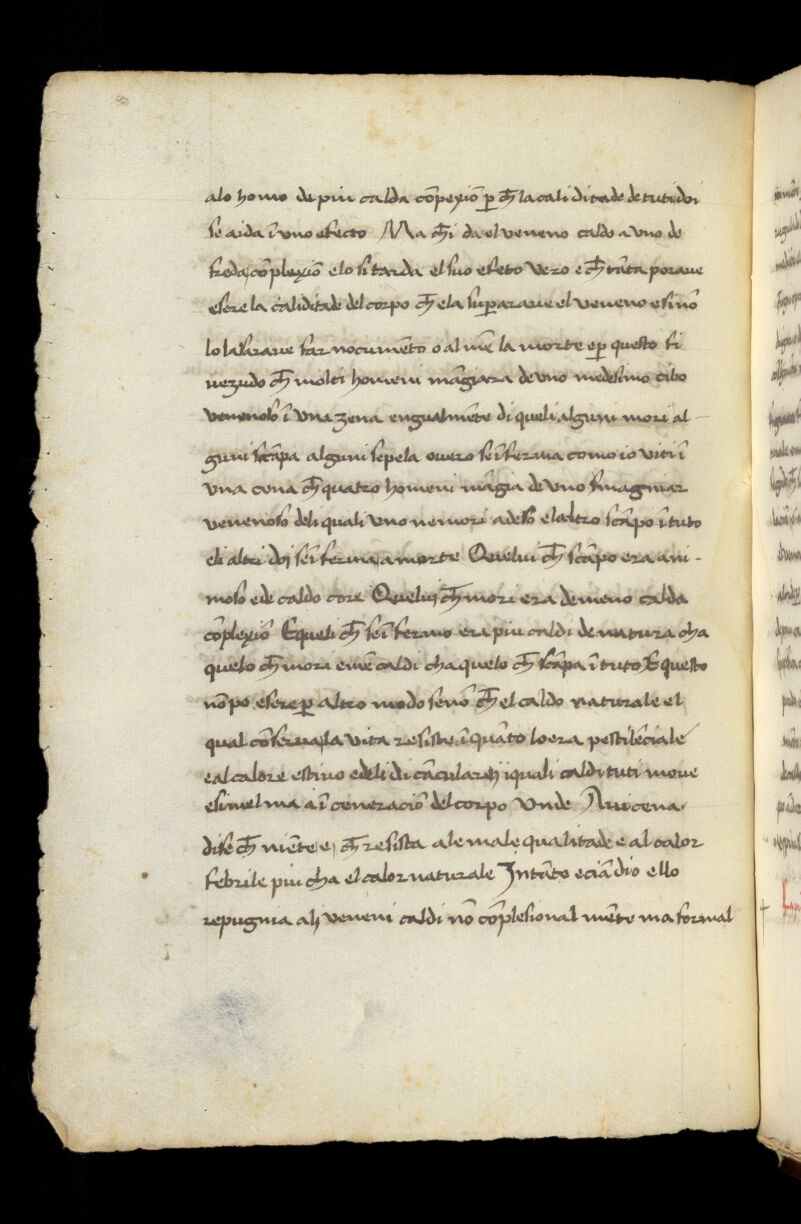 alo homo de piu calda cõpexiõ p̱ ch̄ la caliditade de tuti doi
se aida ĩ uno efecto Ma ch̄i da el veneno caldo a vno de
freda cõplexiõ elo si tarda el suo efeto vero e ch̄ tãta porave
esere la caliditade del corpo ch̄ ela sup̱arave el veneno e si nõ
lo lasarave far nocumẽto o al mẽ la morte e p̱ questo fi
vezudo ch̄ molti homeni mãgiara de vno medesimo cibo
venenoso ĩ vna zena engualmẽte di queli alguni mori al
guni scãpa alguni se pela overo se ĩferma como io viti ĩ
vna cena ch̄ quatro homeni mãgia de vno smagniar
venenoso deli quali vno ne mori adeso el altro scãpo ĩ tuto
eli altri doi se ĩferma a morte Quelui ch̄ scãpo era ani-
moso e de caldo core Quelui ch̄ mori era de meno calda
cõplexiõ E queli ch̄ se ĩfermo era piu caldi de natura cha
quelo ch̄ mori e mẽ caldi cha quelo ch̄ scãpa ĩ tuto E questo
nõ po esere p̱ altro modo senõ ch̄ el caldo naturale el
qual cõserua la vita resiste ĩ quãto lo era pestilẽciale
e al calore estivo e deli di cãculareij i quali caldi tuti move
esimel ma a ĩ ceneraciõ del corpo Unde Avicena
dise ch̄ niẽte e ch̄ resista ale male qualitade e al calor
febrile piu cha el calor naturale Intãto eciãdio ello
repugnia alj veneni caldi nõ cõplesional mẽte ma formal